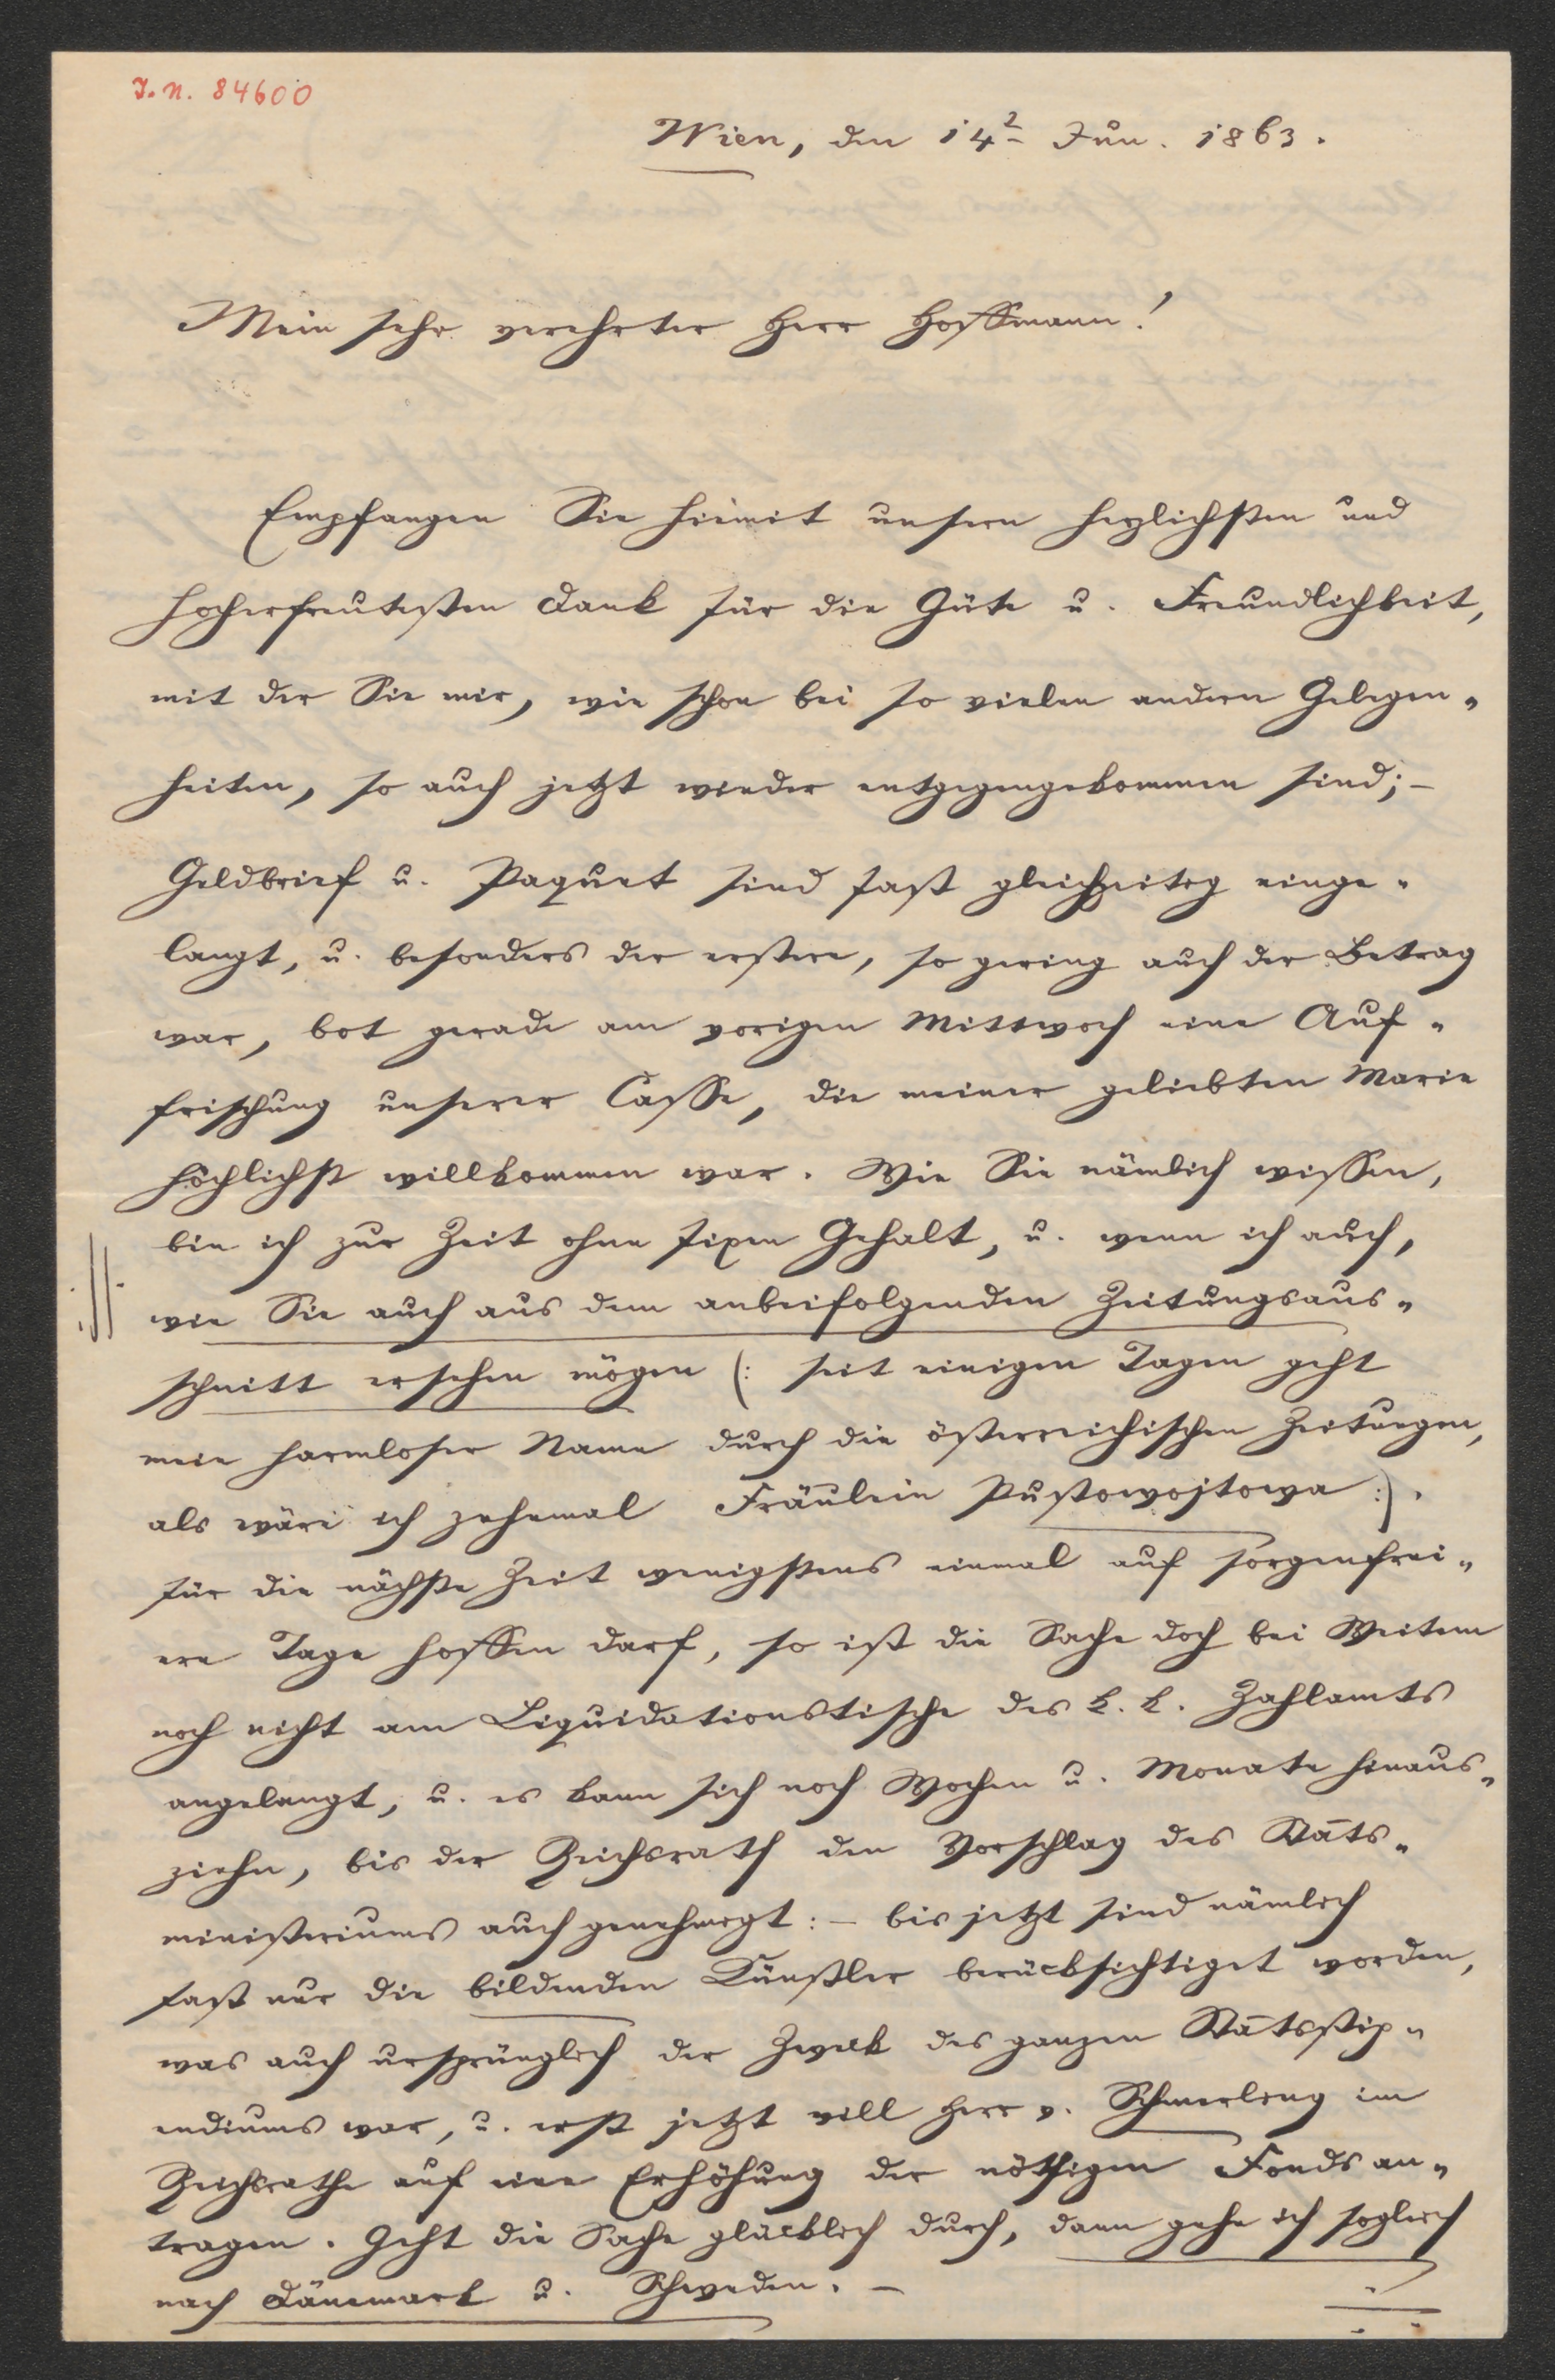 I. N. 84600
Wien, den 14ᵗ Jun. 1863.
Mein sehr verehrter Herr Hoffmann!
Empfangen Sie hiemit unsern herzlichsten und
hocherfreutesten Dank für die Güte u. Freundlichkeit,
mit der Sie mir, wie schon bei so vielen andern Gelegen„
heiten, so auch jetzt wieder entgegengekommen sind; –
Geldbrief u. Paquet sind fast gleichzeitig einge„
langt, u. besonders der erstere, so gering auch der Betrag
war, bot gerade am vorigen Mittwoch eine Auf„
frischung unserer Casse, die meiner geliebten Marie
höchlichst willkommen war. Wie Sie nämlich wissen,
bin ich zur Zeit ohne fixen Gehalt, u. wenn ich auch,
wie Sie auch aus dem anbeifolgenden Zeitungsaus„
schnitt ersehen mögen (: seit einigen Tagen geht
mein harmloser Name durch die österreichischen Zeitungen,
als wäre ich zehnmal Fräulein Pustowojtowa :).
für die nächste Zeit wenigstens einmal auf sorgenfrei„
ere Tage hoffen darf, so ist die Sache doch bei Weitem
noch nicht am Liquidationstische des k. k. Zahlamts
angelangt, u. es kann sich noch Wochen u. Monate hinaus„
ziehn, bis der Reichsrath den Vorschlag des Stāts„
ministeriums auch genehmigt: – bis jetzt sind nämlich
fast nur die bildenden Künstler berücksichtiget worden,
was auch ursprünglich der Zweck des ganzen Stātsstip„
endiums war, u. erst jetzt will Herr v. Schmerling im
Reichsrathe auf eine Erhöhung der nöthigen Fonds an„
tragen. Geht die Sache glücklich durch, dann gehe ich sogleich
nach Dänemark u. Schweden. –